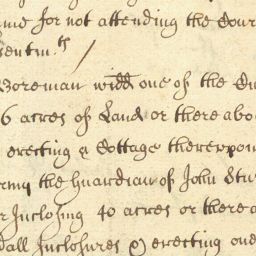 for not attending the Cour
sentm:th
Boreman widd one of the Du
6 acres of Land or there abo
erecting a Cottage thereupon
the Guardian of John Stu
Inclosing 40 acres or there a
dall Inclosures & erecting one